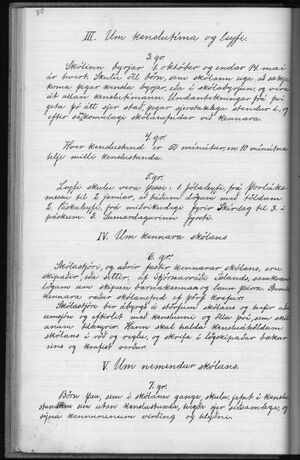 56
III. Um kenslutíma og leyfi.
3. gr.
Skólinn byrjar 1. október og endar 14. maí
ár hvert. Skulu öll börn, sem skólann eiga að sækja
koma þegar kensla byrjar, eða í skólabyrjun, og vera
út allan kenslutímann. Undantekningar frá því
geta þó átt sér stað, þegar sjerstaklega stendur á, og
eftir samkomulagi skólanefndar við kennara.
4. gr.
Hver kenslustund er 50 mínútur, en 10 mínútna
hlje milli kenslustunda.
5. gr.
Leyfi skulu vera þessi: 1. jólaleyfi, frá Þorláks-
messu til 2 janúar, að báðum dögum með töldum.
2. Páskaleyfi, frá miðvikudegi fyrir Skírdag til 3. í
páskum. 3. Sumardagurinn fyrsti.
IV. Um kennara skólans
6. gr.
Skólastjóri, og aðrir fastir kennarar skólans, eru
skipaðir, eða settir, af yfirstjórn Íslands, samkvæmt
lögum um skipun barnakennara og laun þeirra.
kennara ræður skólanefnd ef þörf krefur.
Skólastjóri ber ábyrgð á störfum skólans og hefir alla
umsjón og eftirlit með kenslunni og öllu því, sem skól-
anum tilheyrir. Hann skal halda kensluáhöldum
skólans í röð og reglu, og skrifa í lögskipaðar bækur
eins og krafist verður.
V. Um nemendur skólans.
7. gr.
Börn þau, sem í skólann ganga, skulu, jafnt í kenslu-
stundum sem utan kenslustunda, hegða sjer siðsamlega, og
sýna kennurunum virðingu og hlýðni.